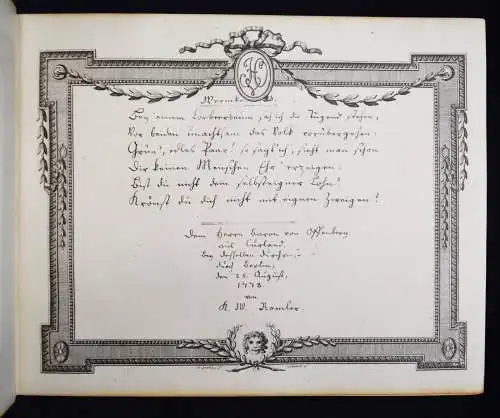 H
Bey einem Lorberbaum sah ich die Tugend stehen,
Vor beiden unachtsam das Volk vorübergehen:
Grün', edles Paar! so sagt' ich, sieht man schon
Dir keinen Menschen Ehr' erzeigen:
Bist du nicht dein selbsteigner Lohn?
Krönst du dich nicht mit eignen Zweigen?
Dem Herrn Baron von Offenberg
aus Curland.
bey desselben
durch Berlin,
den August,
1778.
von
K. W. Ramler.